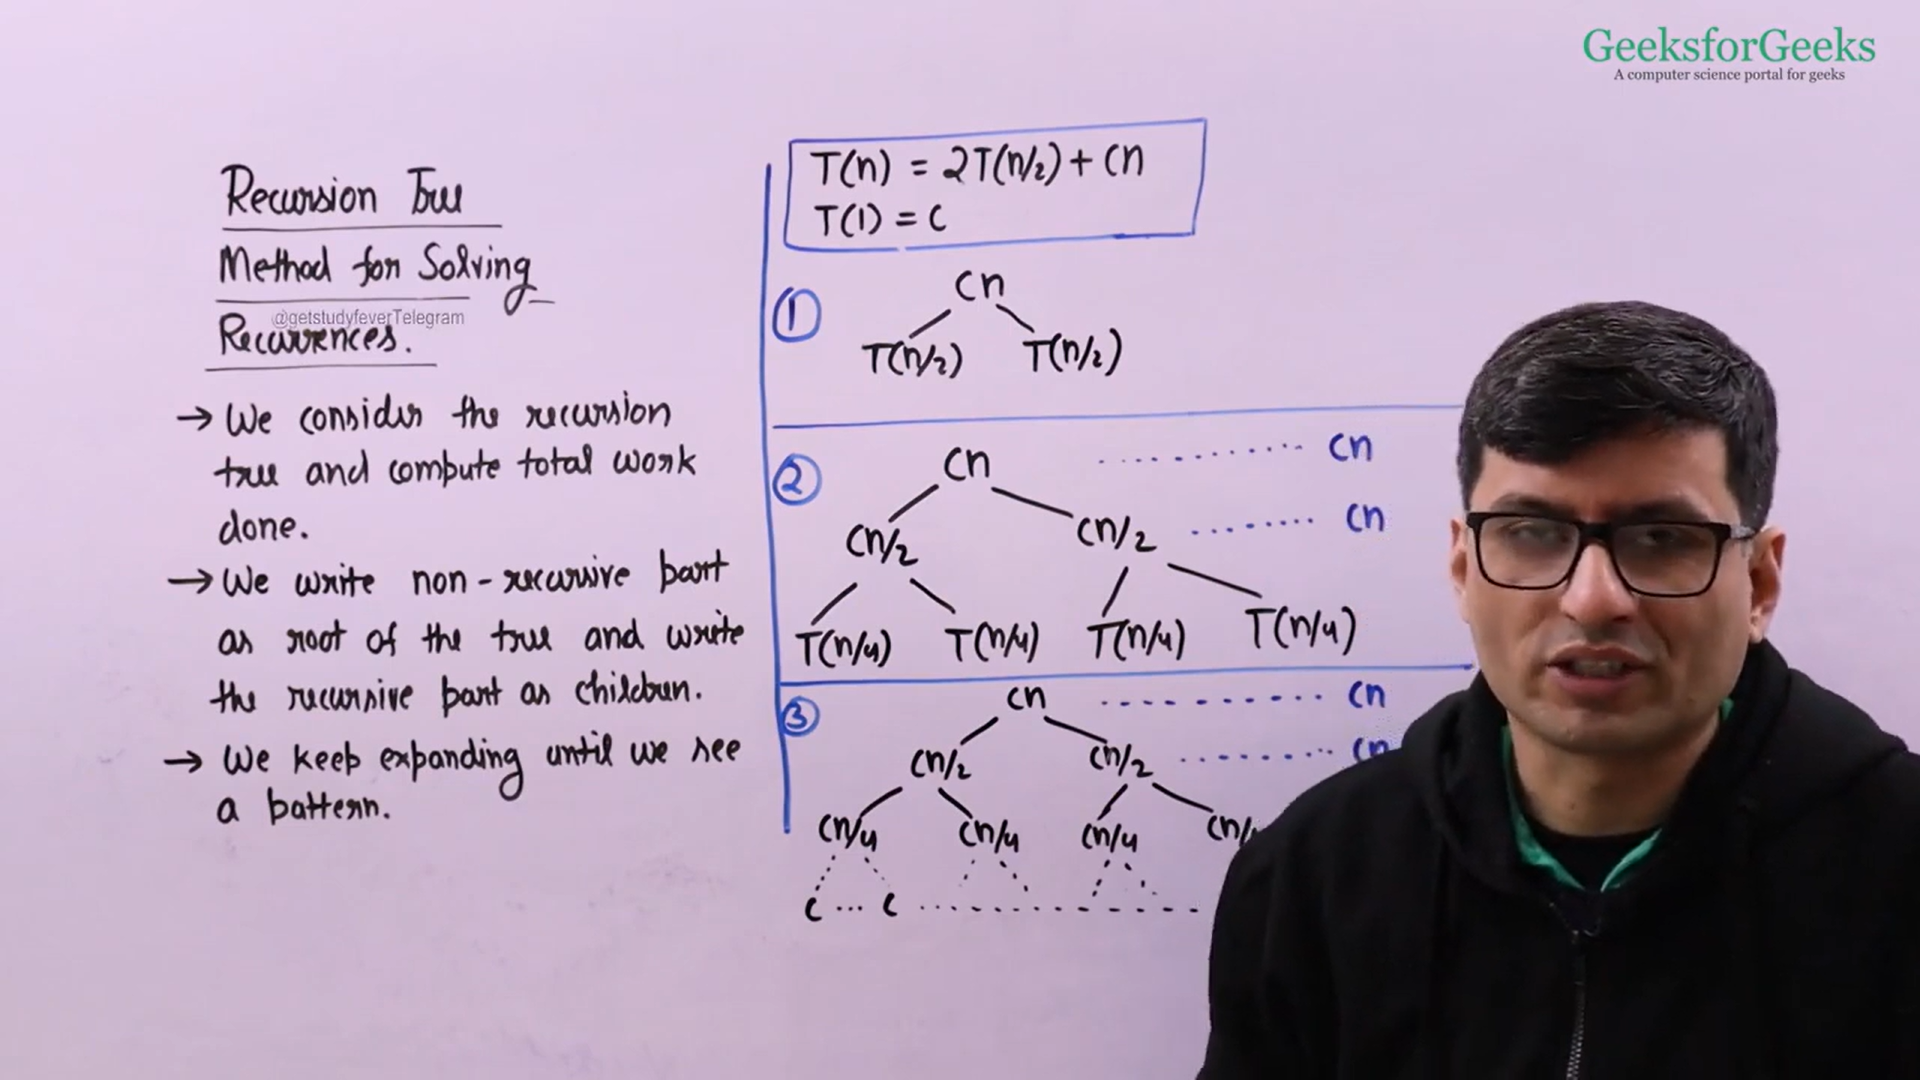 GeeksforGeeks
A computer science portal for geeks
Recursion Tree
Method for Solving
@getstudyfeverTelegram
Recurrences.
→ We consider the recursion
tree and compute total work
done.
→ We write non-recursive part
as root of the tree and write
the recursive part as children.
→ We keep expanding until we see
a pattern.
T(n) = 2T(n/2) + Cn
T(1) = C
① Cn
T(n/2) T(n/2)
② Cn .......... Cn
Cn/2 Cn/2 ........ Cn
T(n/4) T(n/4) T(n/4) T(n/4)
③ Cn .......... Cn
Cn/2 Cn/2 ........ Cn
Cn/4 Cn/4 Cn/4
C ... C ..................